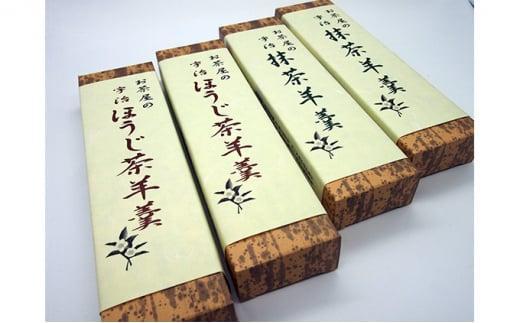 お茶屋の
宇治
ほうじ茶羊羹
お茶屋の
宇治
ほうじ茶羊羹
お茶屋の
宇治
抹茶羊羹
お茶屋の
宇治
抹茶羊羹